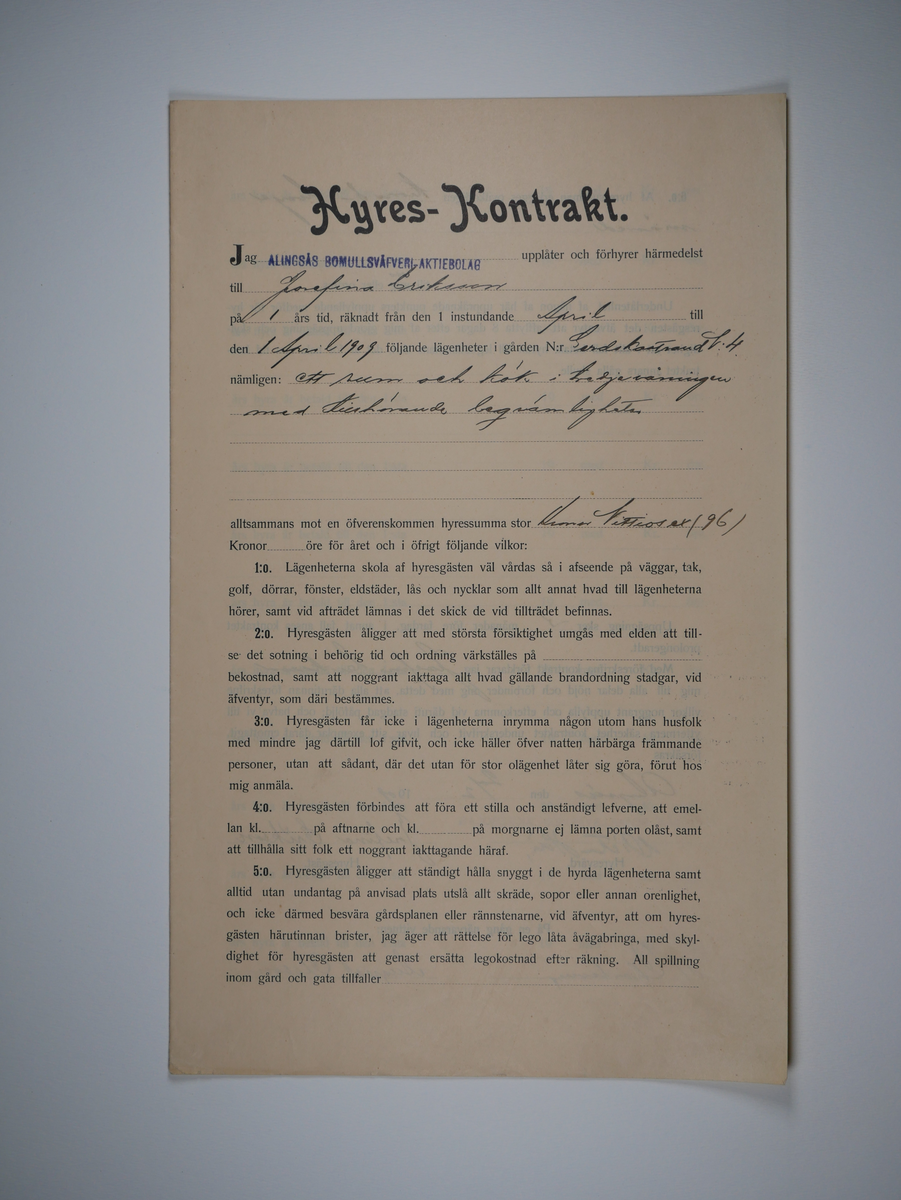 Hyres-Kontrakt.
Jag ALINGSÅS BOMULLSVÄFVERI-AKTIEBOLAG upplåter och förhyrer härmedelst
till Josefina Eriksson
på 1 års tid, räknadt från den 1 instundande April till
den 1 April 1909 följande lägenheter i gården N:r 4
nämligen: ett rum och kök i tredje våningen
med tillhörande beqvämligheter
alltsammans mot en öfverenskommen hyressumma stor Kronor Nittiosex (96)
Kronor öre för året och i öfrigt följande vilkor:
1:o. Lägenheterna skola af hyresgästen väl vårdas så i afseende på väggar, tak,
golf, dörrar, fönster, eldstäder, lås och nycklar som allt annat hvad till lägenheterna
hörer, samt vid afträdet lämnas i det skick de vid tillträdet befinnas.
2:o. Hyresgästen åligger att med största försiktighet umgås med elden att till-
se det sotning i behörig tid och ordning värkställes på
bekostnad, samt att noggrant iakttaga allt hvad gällande brandordning stadgar, vid
äfventyr, som däri bestämmes.
3:o. Hyresgästen får icke i lägenheterna inrymma någon utom hans husfolk
med mindre jag därtill lof gifvit, och icke häller öfver natten härbärga främmande
personer, utan att sådant, där det utan för stor olägenhet låter sig göra, förut hos
mig anmäla.
4:o. Hyresgästen förbindes att föra ett stilla och anständigt lefverne, att emel-
lan kl. på aftnarne och kl. på morgnarne ej lämna porten olåst, samt
att tillhålla sitt folk ett noggrant iakttagande häraf.
5:o. Hyresgästen åligger att ständigt hålla snyggt i de hyrda lägenheterna samt
alltid utan undantag på anvisad plats utslå allt skräde, sopor eller annan orenlighet,
och icke därmed besvära gårdsplanen eller rännstenarne, vid äfventyr, att om hyres-
gästen härutinnan brister, jag äger att rättelse för lego låta åvägabringa, med skyl-
dighet för hyresgästen att genast ersätta legokostnad efter räkning. All spillning
inom gård och gata tillfaller